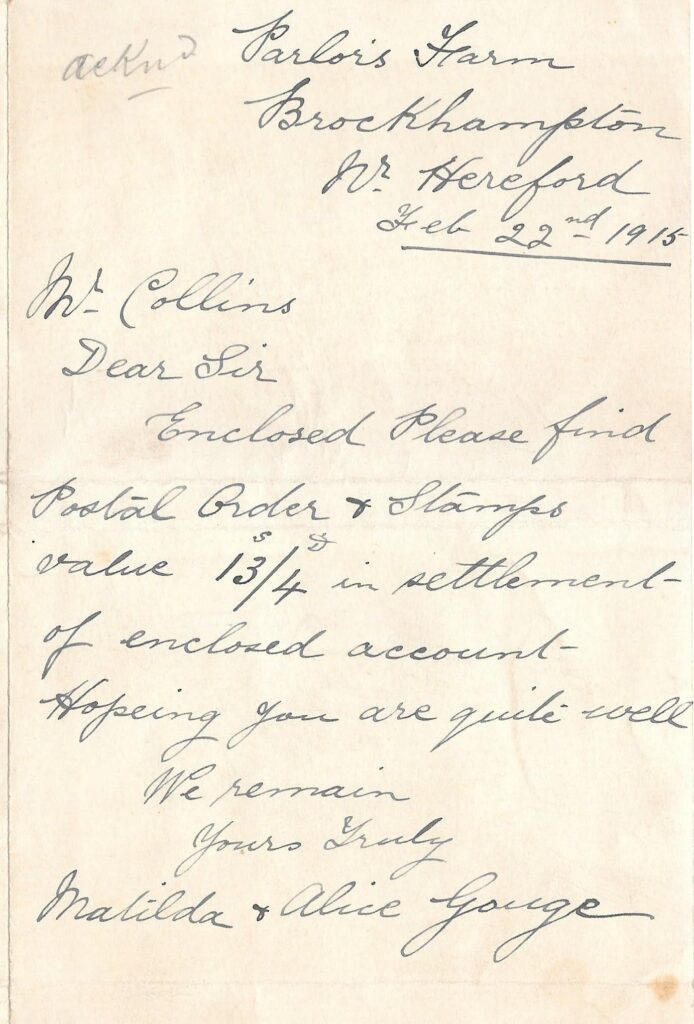 ackn^d
Parlors Farm
Brockhampton
Nr. Hereford
Feb 22nd 1915
Mr. Collins
Dear Sir
Enclosed Please find
Postal Order & Stamps
value 13s/4d in settlement
of enclosed account
Hopeing you are quite well
We remain
Yours Truly
Matilda & Alice Gouge